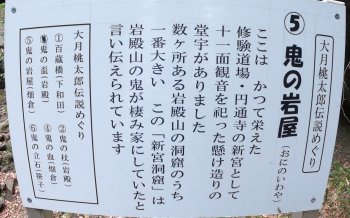 大月桃太郎伝説めぐり
⑤ 鬼の岩屋
(おにのいわや)
ここは かつて栄えた
修験道場・円通寺の新宮として
十一面観音を祀った懸け造りの
堂宇がありました
数ヶ所ある岩殿山の洞窟のうち
一番大きい この「新宮洞窟」は
岩殿山の鬼が棲み家にしていたと
言い伝えられています
大月桃太郎伝説めぐり
①百蔵橋(下和田)
②鬼の杖(岩殿)
③鬼の盃(岩殿)
④鬼の血(畑倉)
⑤鬼の岩屋(畑倉)
⑥鬼の立石(笹子)